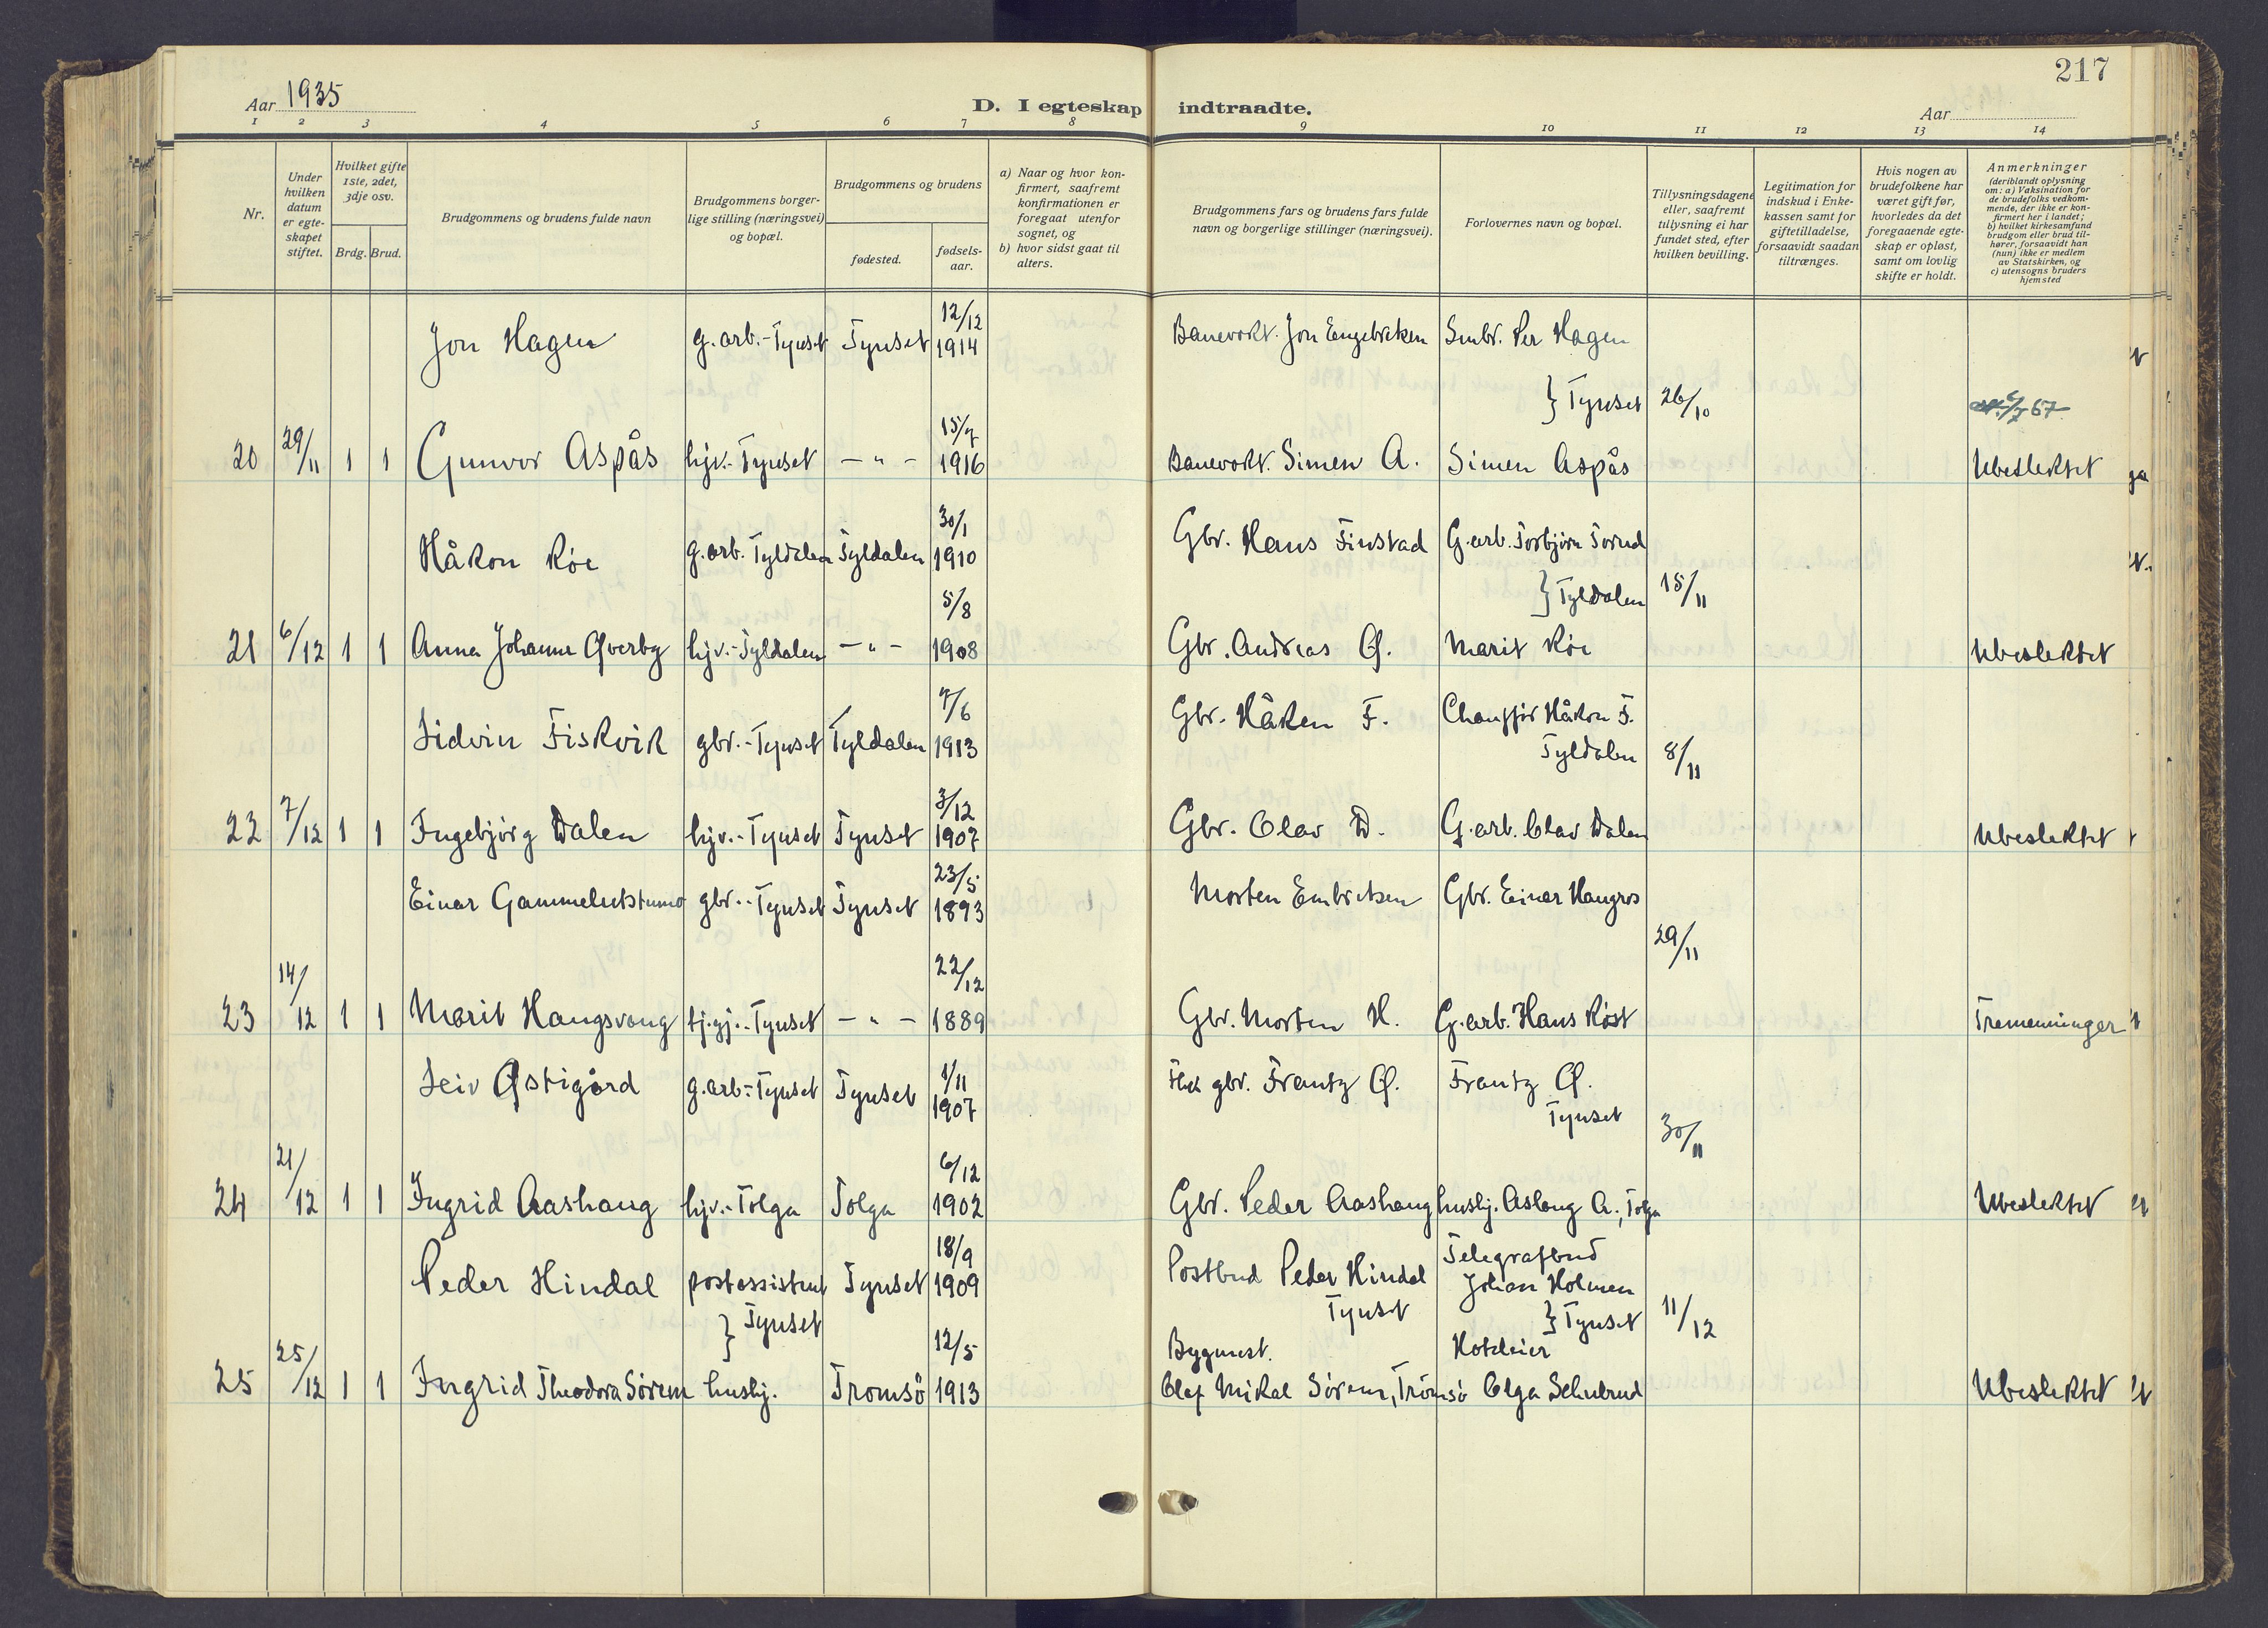 217
Aar 1935
D. I egteskap indtraadte.
Aar
1 2 3 4 5 6 7 8 9 10 11 12 13 14
Nr.
Under hvilken datum er egteskapet stiftet.
Hvilket gifte 1ste, 2det, 3dje osv.
Brdg. Brud.
Brudgommens og brudens fulde navn
Brudgommens borgerlige stilling (næringsvei) og bopæl.
Brudgommens og brudens
fødested.
fødselsaar.
a) Naar og hvor konfirmert, saafremt konfirmationen er foregaat utenfor sognet, og
b) hvor sidst gaat til alters.
Brudgommens fars og brudens fars fulde navn og borgerlige stillinger (næringsvei).
Forlovernes navn og bopæl.
Tillysningsdagene eller, saafremt tillysning ei har fundet sted, efter hvilken bevilling.
Legitimation for indskud i Enkekassen samt for giftetilladelse, forsaavidt saadan tiltrænges.
Hvis nogen av brudefolkene har været gift før, hvorledes da det foregaaende egteskap er opløst, samt om lovlig skifte er holdt.
Anmerkninger (deriblandt oplysning om: a) Vaksination for de brudefolks vedkommende, der ikke er konfirmert her i landet; b) hvilket kirkesamfund brudgom eller brud tilhører, forsaavidt han (hun) ikke er medlem av Statskirken, og c) utensogns bruders hjemsted
Jon Hagen g.arb.-Tynset Tynset 12/12 1914 Banevokt. Jon Engebretsen Smbr. Per Hagen
} Tynset 26/10
20 29/11 1 1 Gunvor Aspås hjv.-Tynset -"- 15/7 1916 Banevokt. Simen A. Simen Aspås Ubeslektet
Håkon Röe g.arb. Tyldalen Tyldalen 30/1 1910 Gbr. Hans Finstad G.arb. Torbjörn Torud
} Tyldalen 15/11
21 6/12 1 1 Anna Johanne Øverby hjv.-Tyldalen -"- 5/8 1908 Gbr. Andreas Ø. Marit Röe Ubeslektet
Sidvin Fiskvik gbr.-Tynset Tyldalen 7/6 1913 Gbr. Håken F. Chaufför Håkon F.
Tyldalen 8/11
22 7/12 1 1 Ingebjörg Dalen hjv.-Tynset Tynset 3/12 1907 Gbr. Olav D. G.arb. Olav Dalen Ubeslektet
Einar gbr.-Tynset Tynset 23/5 1893 Morten Embretsen Gbr. Einar Haugros
29/11
23 14/12 1 1 Marit Haugsvang tj.gj.-Tynset -"- 22/12 1889 Gbr. Morten H. G.arb. Hans Röst Tremenninger
Leiv Østigård g.arb.-Tynset Tynset 1/11 1907 gbr. Frantz Ø. Frantz Ø.
Tynset 30/11
24 21/12 1 1 Ingrid Aashaug hjv.-Tolga Tolga 6/12 1902 Gbr. Peder Aashaug hushj. Aslaug A., Tolga Ubeslektet
Peder Hindal postassistent Tynset 18/9 1909 Postbud Peder Hindal Tynset Telegrafbud Johan Holmen
} Tynset } Tynset 11/12
25 25/12 1 1 Ingrid Theodora Sörem hushj. Tromsö 12/5 1913 Bygmest. Olaf Mikal Sörem, Tromsö Hoteleier Olga Schulrud Ubeslektet